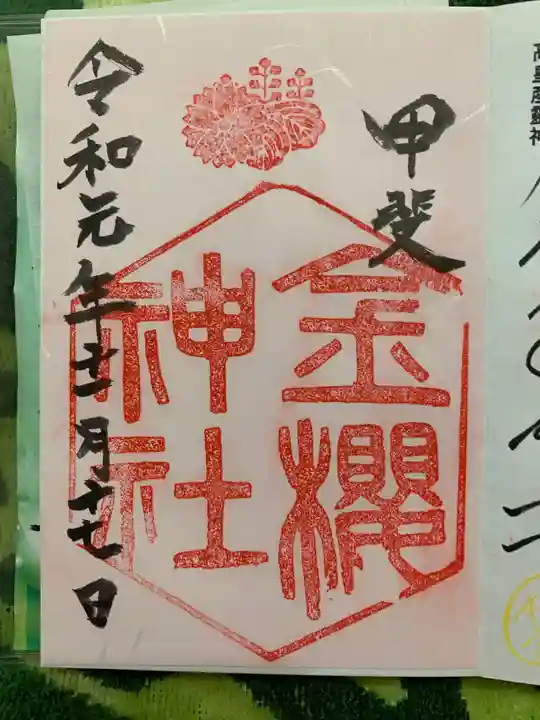 甲斐
金櫻
神社
令和元年十一月十七日
高皇産靈神